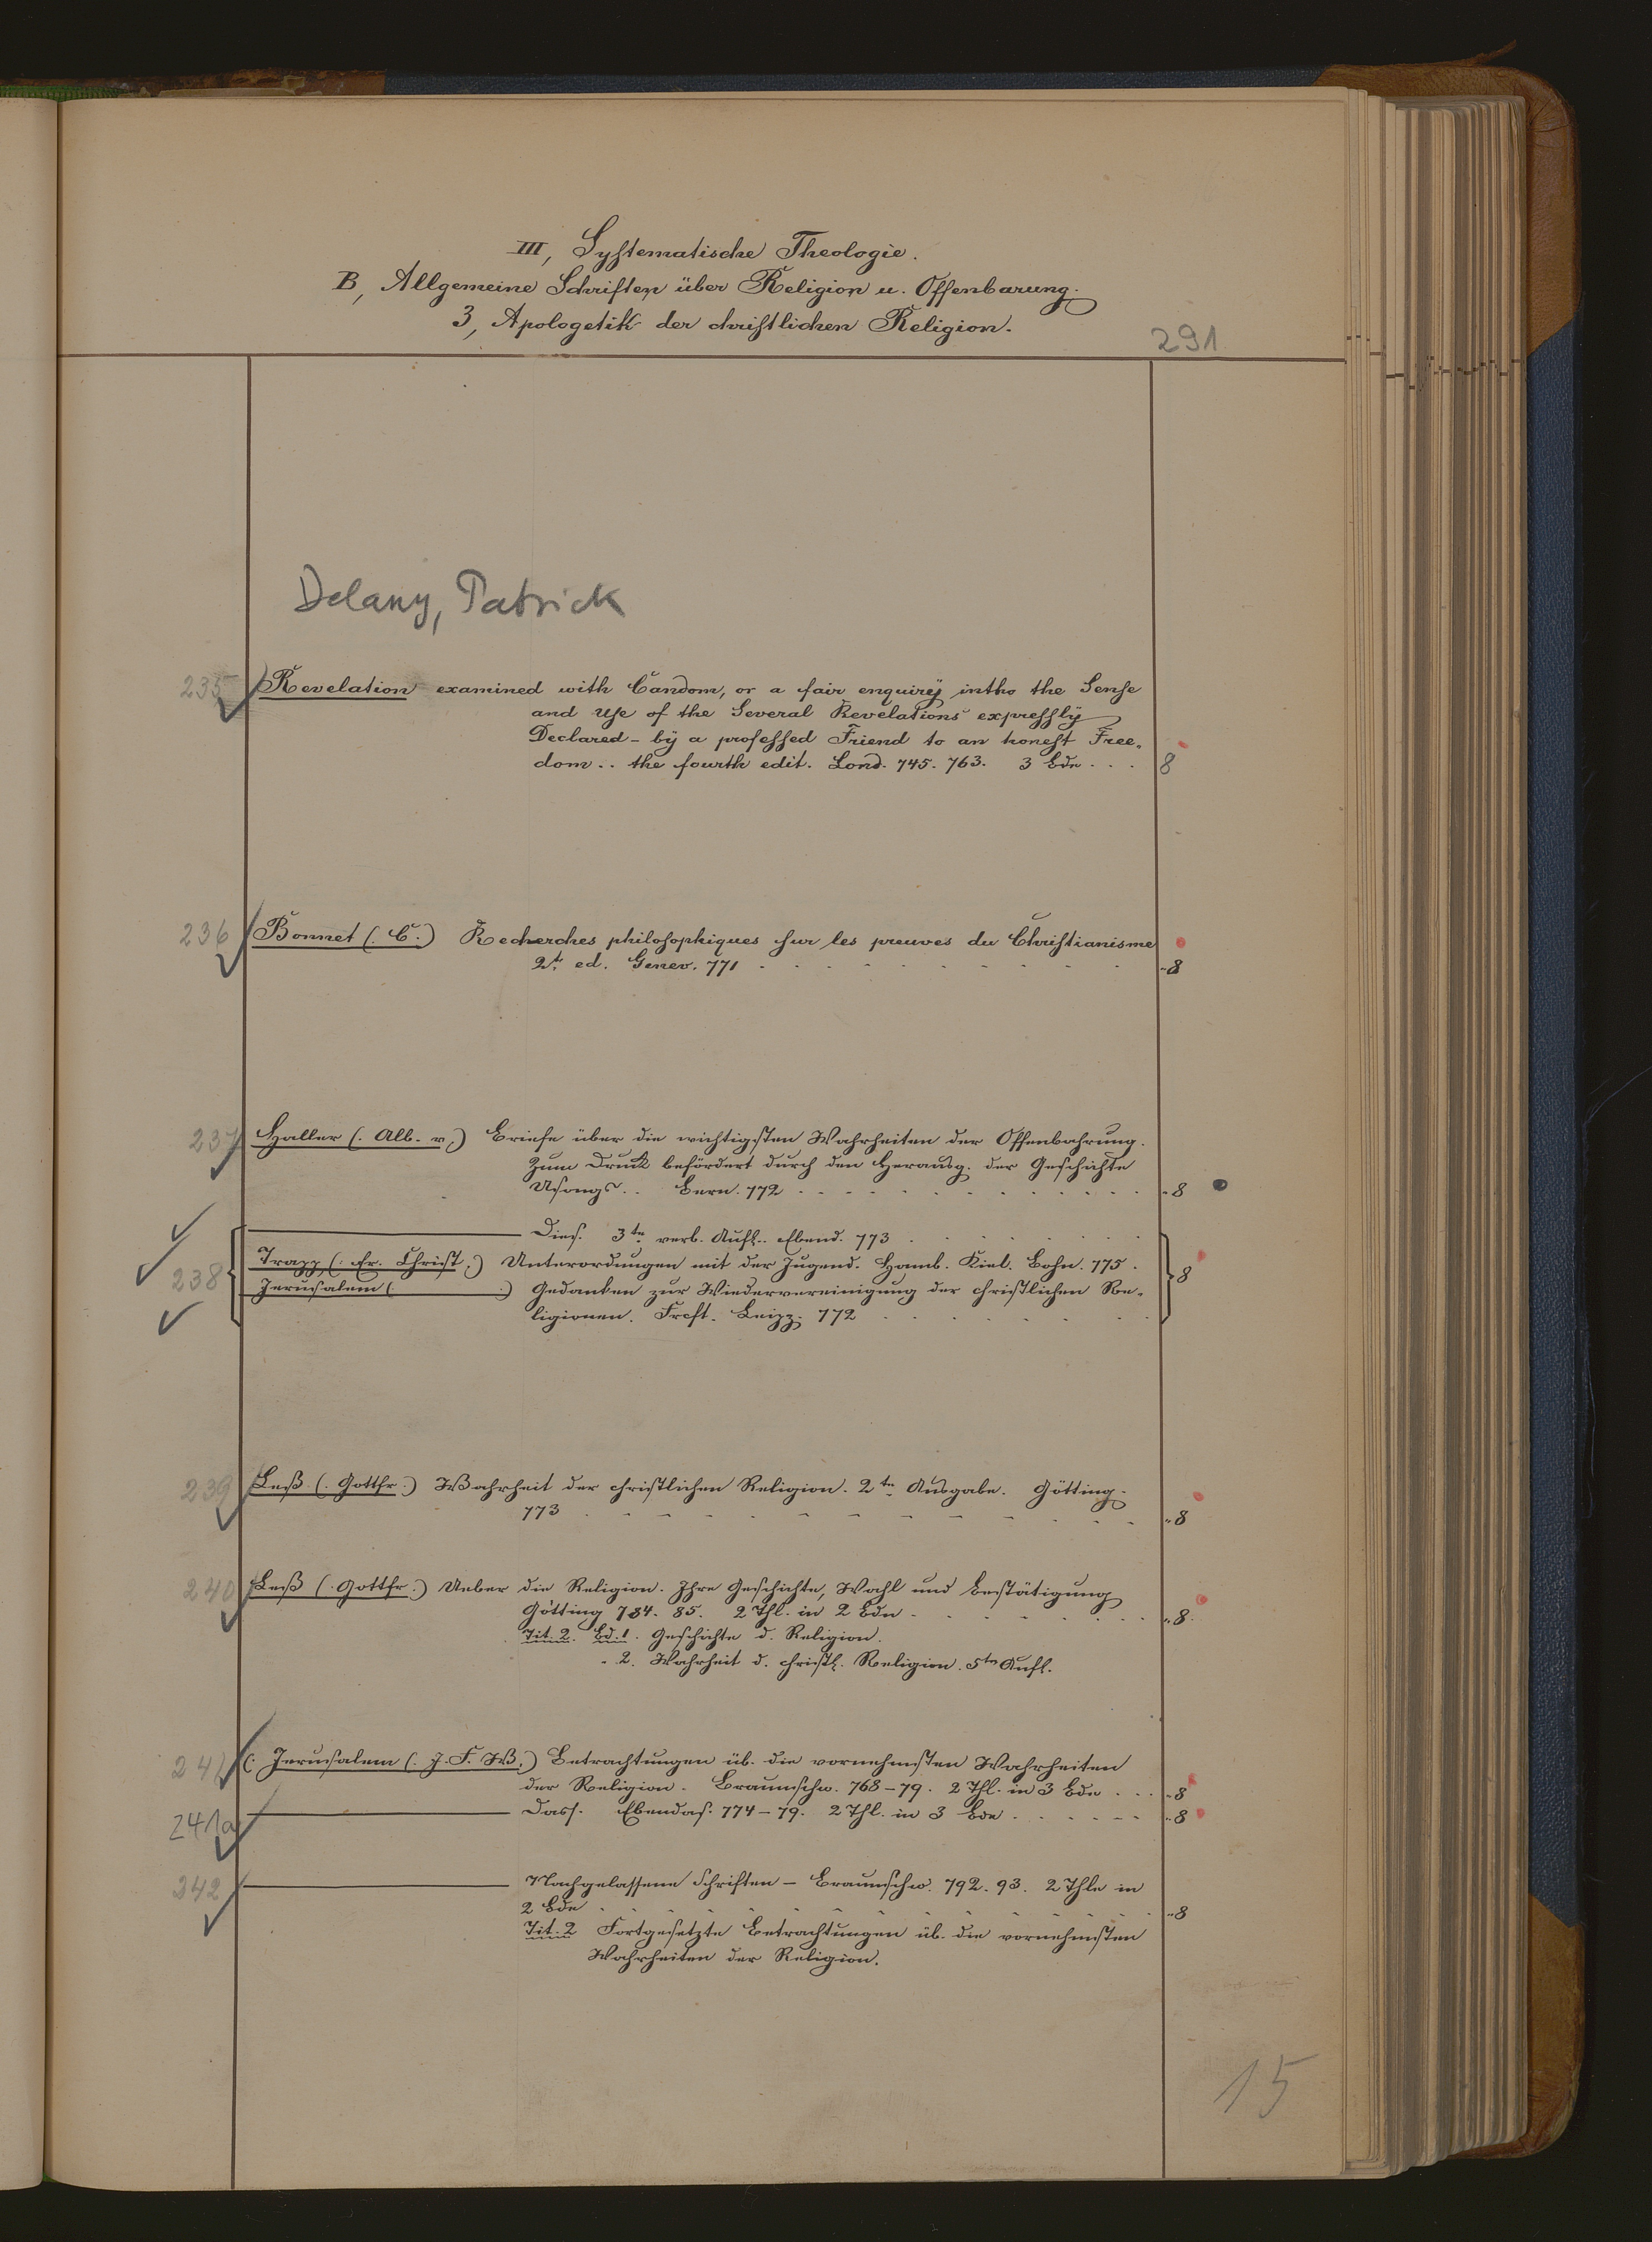 III, Systematische Theologie.
B, Allgemeine Schriften über Religion u. Offenbarung.
3, Apologetik der christlichen Religion.
291
Delany, Patrick
235 Revelation examined with Candom, or a fair enquirÿ intho the Sense
and Use of the Several Revelations expresslÿ
Declared - bÿ a professed Friend to an honest Free-
dom .. the fourth edit. Lond. 745. 763. 3 Bde . . . 8
236 Bonnet (. C.) Recherches philosophiques sur les preuves du Christianisme
2t. ed. Genev. 771 . . . . . . . . . . „8
237 Haller (. Alb. v.) Briefe über die wichtigsten Wahrheiten der Offenbahrung.
Zum Druck befördert durch den Herausg. der Geschichte
Usongs . . Bern. 772 . . . . . . . . . . „8
Dies. 3te verb. Aufl. . Ebend. 773 . . . . . . .
238 Trapp (. Er. Christ.) Unterredungen mit der Jugend. Hamb. Kiel. Bohn. 775 . 8
Jerusalem (. .) Gedanken zur Wiedervereinigung der christlichen Re-
ligionen. Frcft. Leipz. 772 . . . . . . .
239 Leß (. Gottfr.) Wahrheit der christlichen Religion. 2te Ausgabe. Götting.
773 . . . . . . . . . . . . „8
240 Leß (. Gottfr.) Ueber die Religion. Ihre Geschichte, Wahl und Bestätigung
Götting 784. 85. 2 Thl. in 2 Bde . . . . . . . „8.
Tit. 2. Bd. 1. Geschichte d. Religion.
„ 2. Wahrheit d. christl. Religion. 5te Aufl.
241 (. Jerusalem (. J. F. W.) Betrachtungen üb. die vornehmsten Wahrheiten
der Religion. Braunschw. 768-79. 2 Thl. in 3 Bde . . . „8
241a Dass. Ebendas. 774-79. 2 Thl. in 3 Bde . . . . . . „8
242 Nachgelassene Schriften - Braunschw. 792. 93. 2 Thle in
2 Bde . . . . . . . . . . . . „8
Tit. 2 Fortgesetzte Betrachtungen üb. die vornehmsten
Wahrheiten der Religion.
15